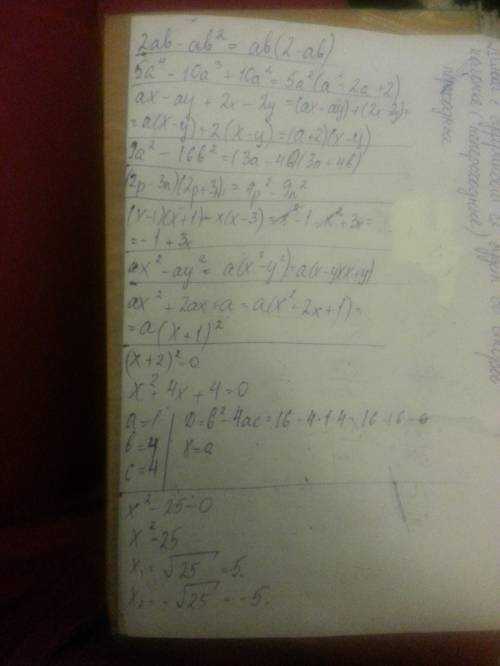 2ab - ab² = ab(2 - ab)
5a⁴ - 10a³ + 10a² = 5a²(a² - 2a + 2)
ax - ay + 2x - 2y = (ax - ay) + (2x - 2y) =
= a(x-y) + 2(x-y) = (a+2)(x-y)
9a² - 16b² = (3a - 4b)(3a + 4b)
(2p - 3n)(2p + 3n) = 4p² - 9n²
(x-1)(x+1) - x(x-3) = x² - 1 - x² + 3x =
= -1 + 3x
ax² - ay² = a(x² - y²) = a(x-y)(x+y)
ax² + 2ax + a = a(x² + 2x + 1) =
= a(x+1)²
(x+2)² = 0
x² + 4x + 4 = 0
a = 1 D = b² - 4ac = 16 - 4·1·4 = 16-16 = 0
b = 4 x =
c = 4
x² - 25 = 0
x² = 25
x₁ = √25 = 5.
x₂ = -√25 = -5.